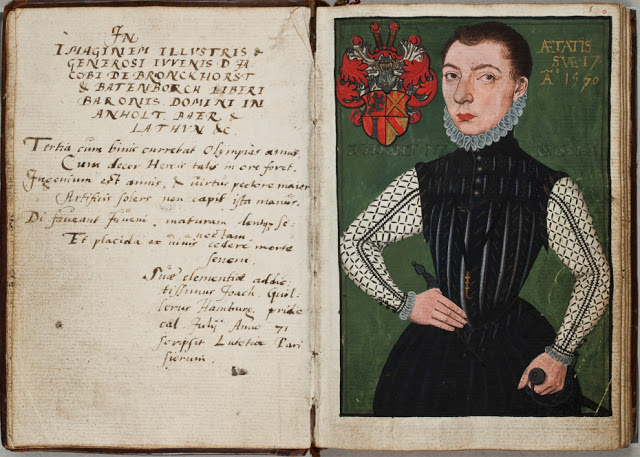 IN
IMAGINEM ILLUSTRIS &
GENEROSI IVVENIS D IA
COBI DE BRONCKHORST
& BATENBORCH LIBERI
BARONIS DOMINI IN
ANHOLT BAER &
LATHVN &c
Tertia cum binis currebat Olympias annis,
Cum decor Herois talis in ore foret.
Ingenium est annis, & virtus pectore maior
Artificis solers non capit ista manus.
Di faveant Iuveni, maturam dentq se-
nectam
Et placida ex vivis cedere morte
senem.
Suæ clementiæ addic-
tissimus Joach.
Hamburg. pridie
cal. Julij Anno 71
scripsit Lutetiæ Pari
siorum.
ÆTATIS
SVÆ 17
A° 1570